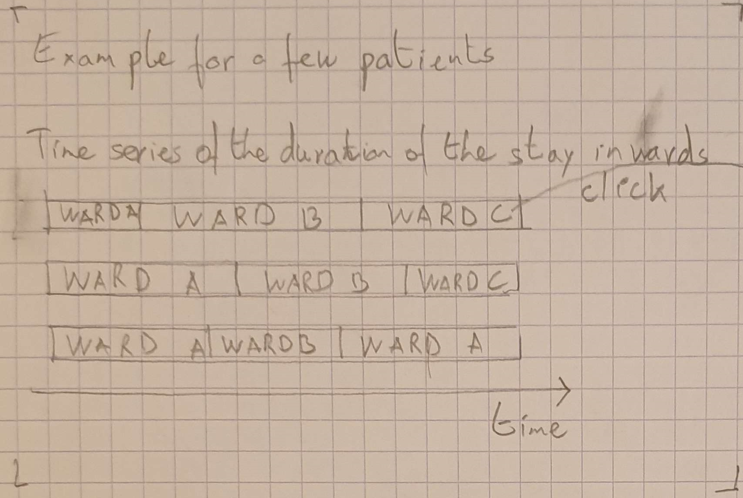 Example for a few patients
Time series of the duration of the stay in wards
click
WARD A WARD B WARD C
WARD A WARD B WARD C
WARD A WARD B WARD A
time